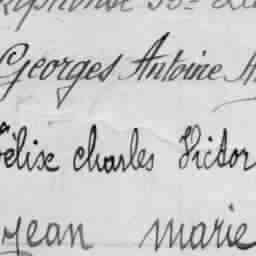 Georges Antoine
Félix Charles Victor
Jean Marie